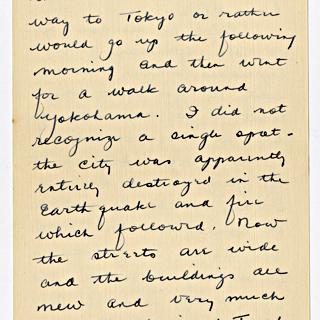 way to Tokyo or rather
would go up the following
morning and then went
for a walk around
Yokohama. I did not
recognize a single spot -
the city was apparently
entirely destroyed in the
Earthquake and fire
which followed. Now
the streets are wide
and the buildings are
new and very much